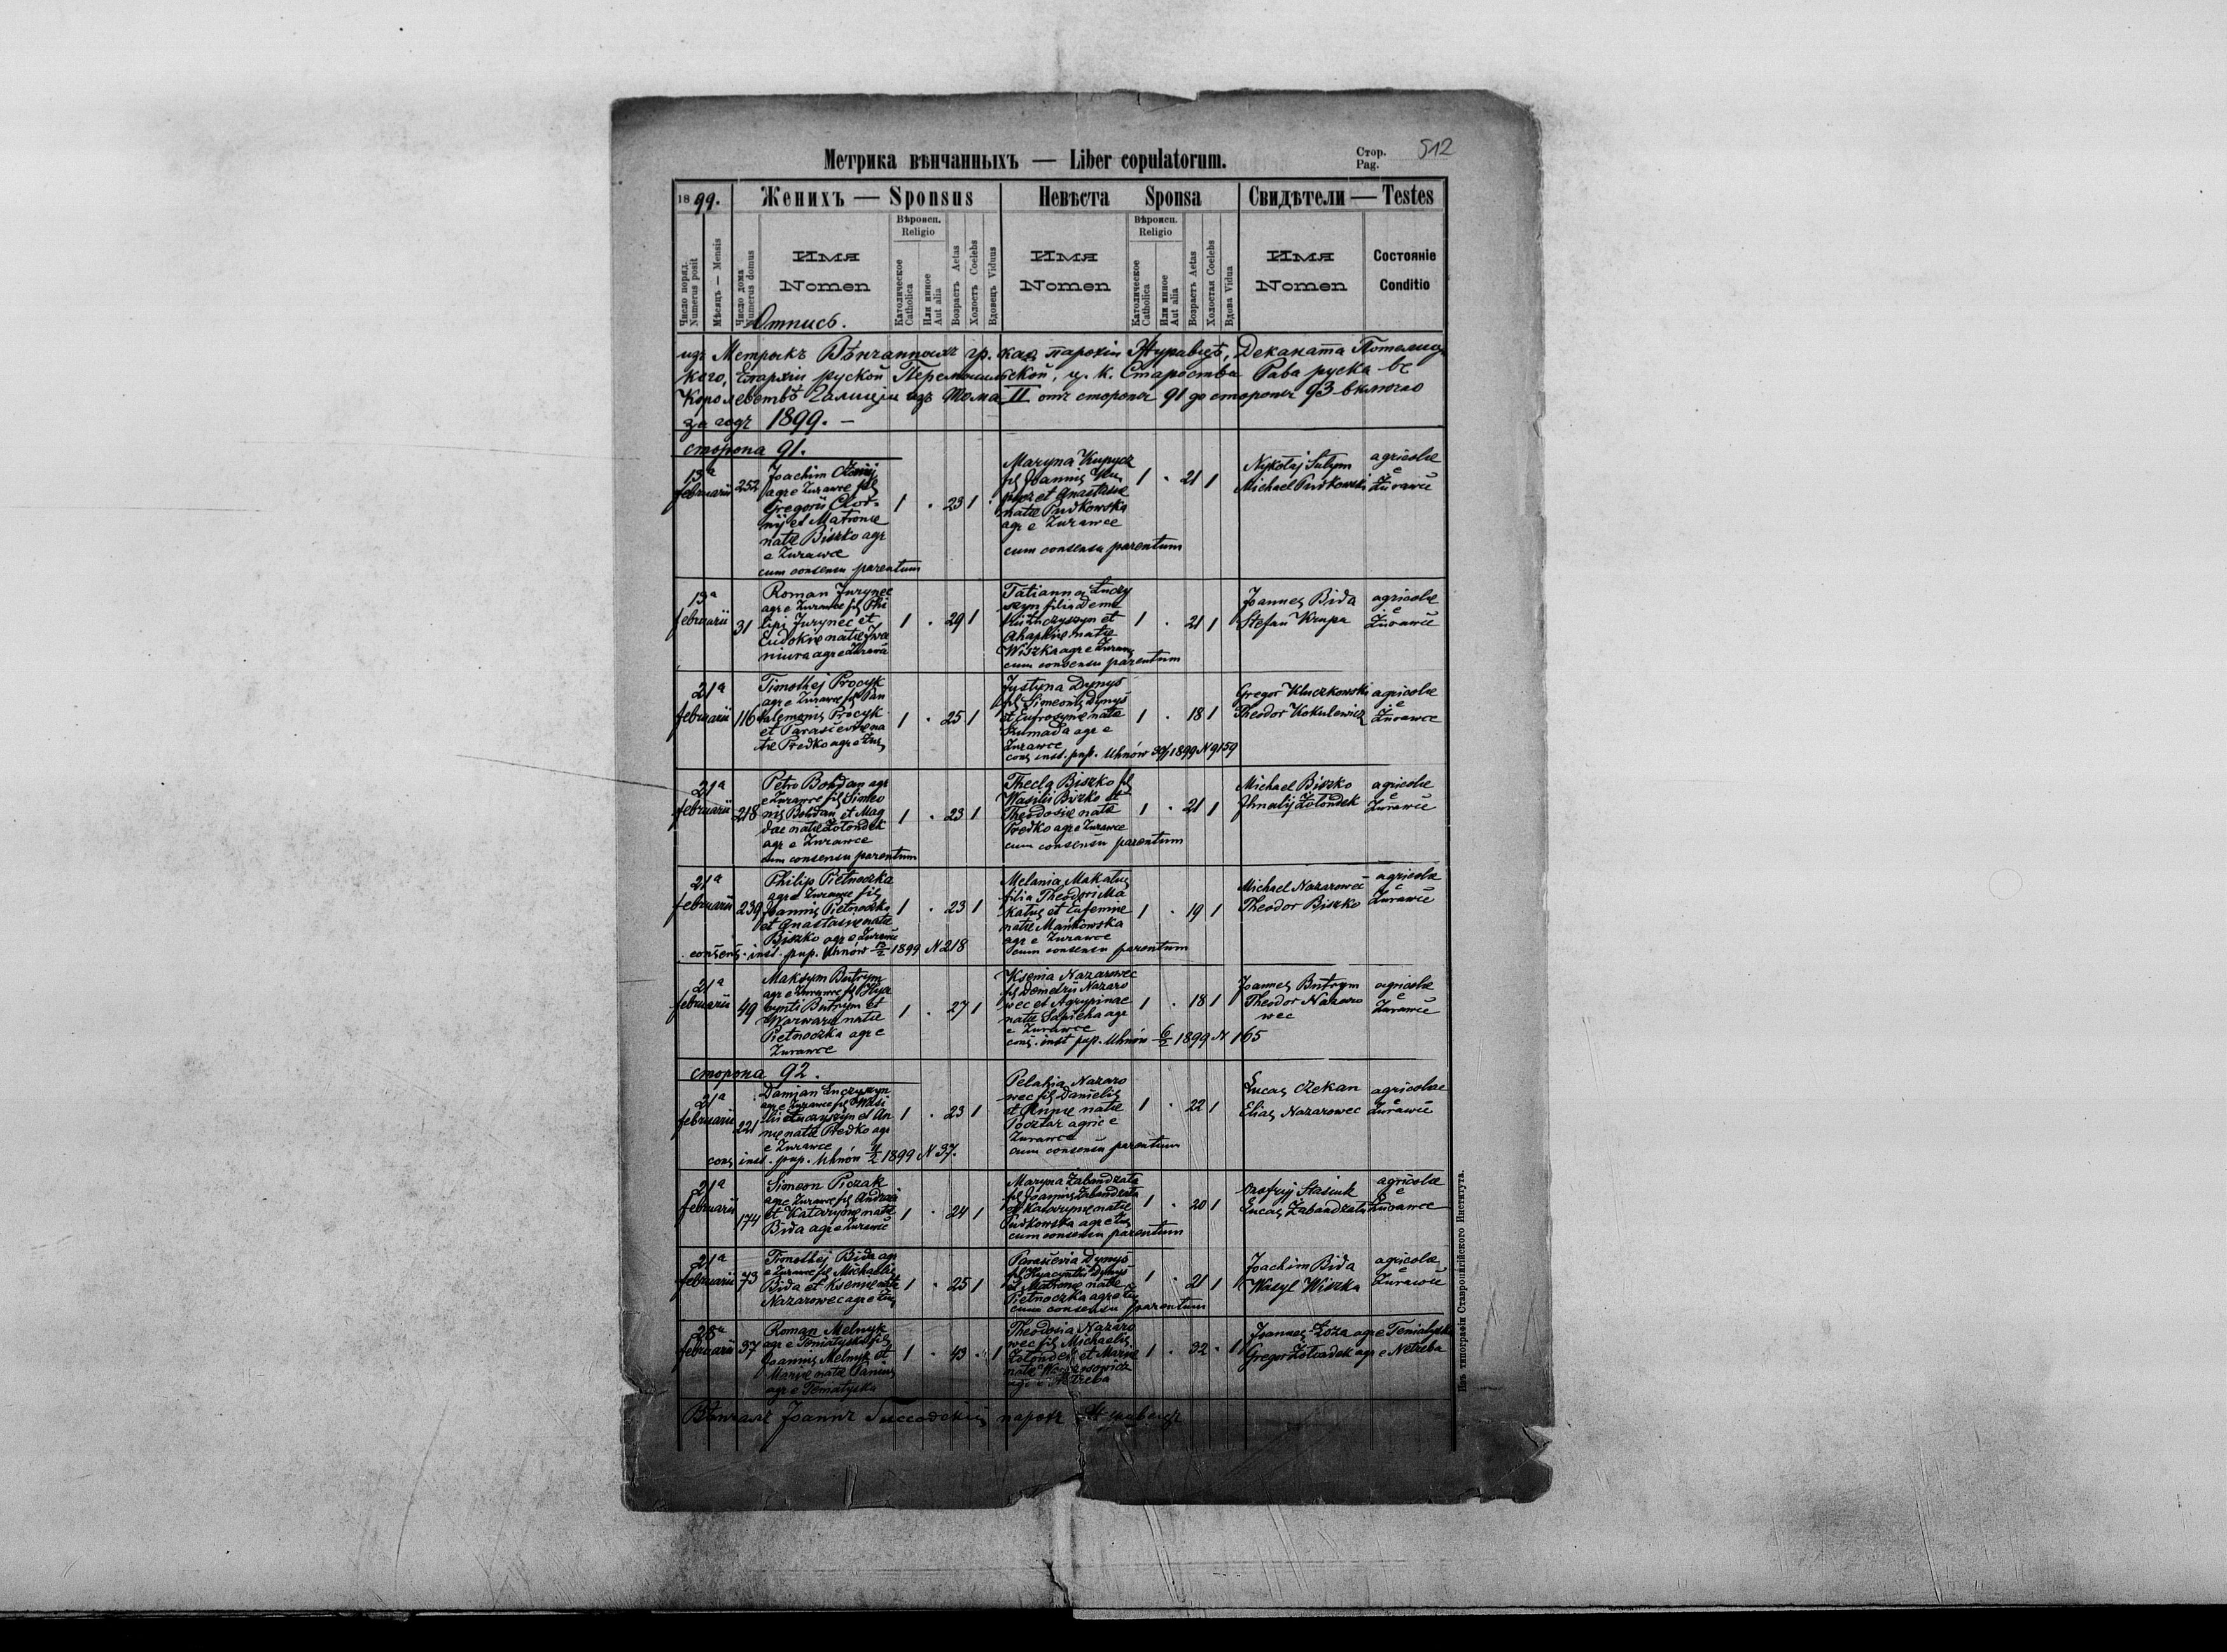 Метрика вѣнчанныхъ — Liber copulatorum.
Стор.
Pag.
512
1899.
Женихъ — Sponsus
Невѣста Sponsa
Свидѣтели — Testes
Число поряд.
Numerus posit
Мѣсяцъ — Mensis
Число дома
Numerus domus
Имя
Nomen
Вѣроисп.
Religio
Католическое
Catholica
Или иное
Aut alia
Возрастъ Aetas
Холостъ Coelebs
Вдовецъ Viduus
Имя
Nomen
Вѣроисп.
Religio
Католическое
Catholica
Или иное
Aut alia
Возрастъ Aetas
Холостая Coelebs
Вдова Vidua
Имя
Nomen
Состояніе
Conditio
Отпись.
изъ Метрыкъ Вѣнчанныхъ гр. кат. парохіи Журавцѣ, Деканата Потелиц
кого, Епархіи руской Перемышльской, ц. к. Староства Рава руска ве
Королевствѣ Галиціи изъ Тома II отъ стороны 91 до стороны 93 включно
за годъ 1899. —
сторона 91.
13a
februarii
252
Joachim
agr e Żurawce fil
Gregorii
nij et Matronae
natae Biszko agr
e Żurawce
cum consensu parentum
1 . 23 1
Maryna
fil Joannis
et Anastasiae
natae Pudkowska
agr e Żurawce
cum consensu parentum
1 . 21 1
Nykołaj
Michael Pudkowski
agricolae
e
Żurawce
13a
februarii
31
Roman Jurynec
agr e Żurawce fil Phi
lipi Jurynec et
Eudokiae natae Iwa
niura agr e Żurawce
1 . 29 1
Tatianna Łuczy
szyn filia Deme
trii Łuczyszyn et
Ahaphiae natae
Wiszka agr e Żurawce
cum consensu parentum
1 . 21 1
Joannes Bida
Stefan Krupa
agricolae
e
Żurawce
21a
februarii
116
Timothej Procyk
agr e Żurawce fil Pan
talemonis Procyk
et Parasceviae na
tae Predko agr e Żur
1 . 25 1
Justyna Dynys
fil Simeonis Dynys
et Eufrosynae natae
Szumada agr e
Żurawce
cons inst. pup. Uhnów 1899 N 9159
1 . 18 1
Gregor Kluczkowski
Theodor Kokulewicz
agricolae
e
Żurawce
21a
februarii
218
Petro Bohdan agr
e Żurawce fil Simeo
nis Bohdan et Mag
dae natae Żołondek
agr e Żurawce
cum consensu parentum
1 . 23 1
Thecla Biszko fil
Wasilii Biszko et
Theodosiae natae
Predko agr e Żurawce
cum consensu parentum
1 . 21 1
Michael Biszko
Ihnatij Żołondek
agricolae
e
Żurawce
21a
februarii
239
Philip Pietnoczka
agr e Żurawce fil
Joannis Pietnoczka
et Anastasiae natae
Biszko agr e Żurawce
consens. inst. pup. Uhnów 1899 N 218
1 . 23 1
Melania Makalus
filia Theodori Ma
kalus et Eufemiae
natae Mańkowska
agr e Żurawce
cum consensu parentum
1 . 19 1
Michael Nazarowec
Theodor Biszko
agricolae
e
Żurawce
21a
februarii
49
Maksym Butrym
agr e Żurawce fil Hya
cynti Butrym et
Warwarae natae
Pietnoczka agr e
Żurawce
1 . 27 1
Ksenia Nazarowec
fil Demetrij Nazaro
wec et Agrypinae
natae Sapieha agr
e Żurawce
cons. inst pup. Uhnów 6/2 1899 N 165
1 . 18 1
Joannes Butrym
Theodor Nazaro
wec
agricolae
e
Żurawce
сторона 92.
21a
februarii
221
Damian Łuczyszyn
agr e Żurawce fil Wasi
lii Łuczyszyn et An
nae natae Predko agr
e Żurawce
cons inst. pup. Uhnów 1899 N 37.
1 . 23 1
Pelahia Nazaro
wec fil Danielis
et Annae natae
Pocztar agric e
Żurawce
cum consensu parentum
1 . 22 1
Lucas Czekan
Elias Nazarowec
agricolae
e
Żurawce
21a
februarii
174
Simeon Piczak
agr e Żurawce fil Andreii
et Katarynae natae
Bida agr e Żurawce
1 . 24 1
Maryna Żabandżała
fil Joannis Żabandżała
et Katarynae natae
Pudkowska agr e Żur
cum consensu parentum
1 . 20 1
Onofrij Stasiuk
Lucas Żabandżała
agricolae
e
Żurawce
21a
februarii
73
Timothej Bida agr
e Żurawce fil Michaelis
Bida et Kseniae natae
Nazarowec agr e Żur
1 . 25 1
Parascevia Dynys
fil Hyacynthi Dynys
et Matronae natae
Pietnoczka agr e Żur
cum consensu parentum
1 . 21 1
Joachim Bida
Wasyl Wiszka
agricolae
e
Żurawce
28a
februarii
37
Roman Melnyk
agr e Teniatyska fil
Joannis Melnyk et
Mariae natae
agr e Teniatyska
1 . 43 . 1
Theodosia Nazaro
wec fil Michaelis
Żołondek et Mariae
natae
agr e Netreba
1 . 32 . 1
Joannes Łoza agr e Teniatyska
Gregor Żołondek agr e Netreba
Вѣнчалъ Іоаннъ парохъ Журавецъ
Изъ типографіи Ставропигійского Института.